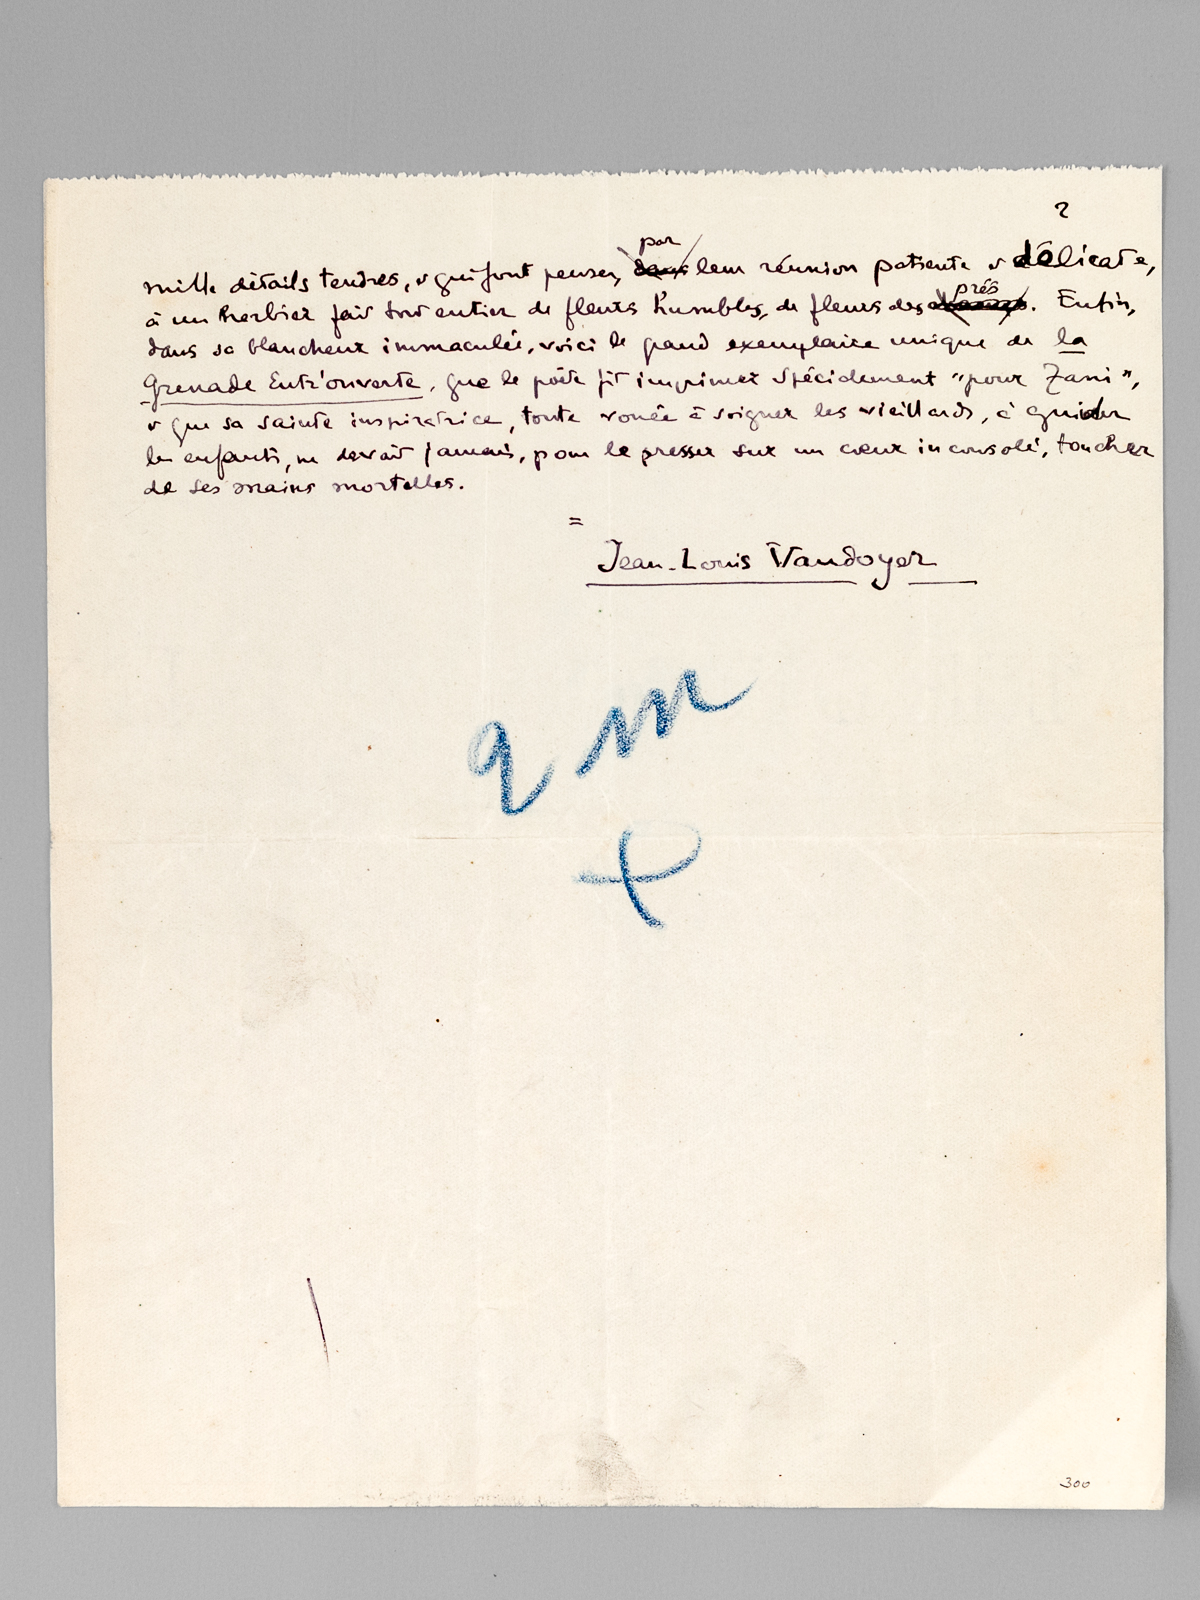 2
mille détails tendres, & qui font penser, par leur réunion patiente & délicate,
à un herbier fait tout entier de fleurs humbles, de fleurs des prés. Enfin,
dans sa blancheur immaculée, voici le grand exemplaire unique de la
Grenade Entr'ouverte, que le poète fit imprimer spécialement "pour Zani",
& que sa sainte inspiratrice, toute vouée à soigner les vieillards, à guider
les enfants, ne devait jamais, pour le presser sur un cœur inconsolé, toucher
de ses mains mortelles.
=
Jean-Louis Vaudoyer
300